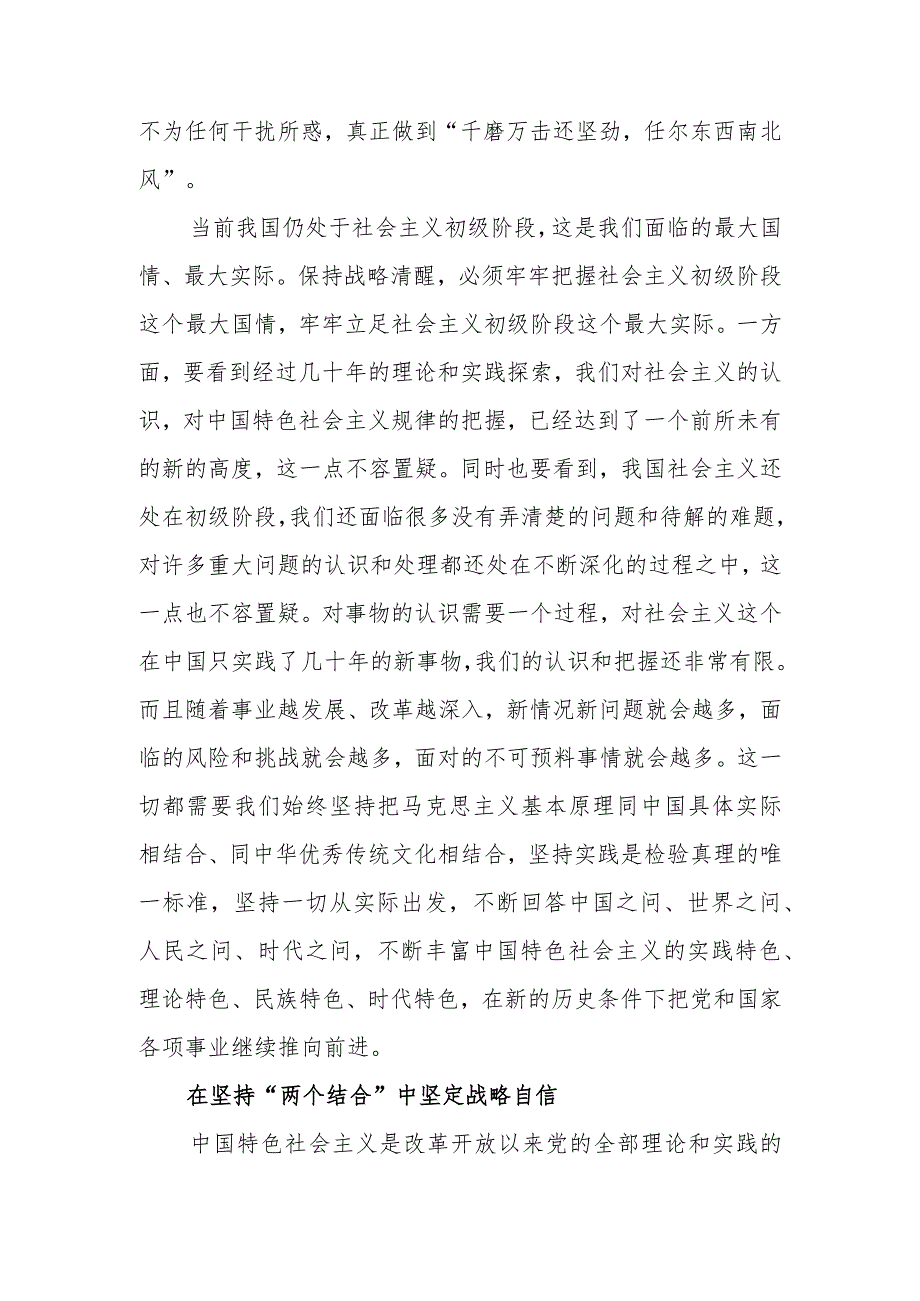 不为任何干扰所惑，真正做到“千磨万击还坚劲，任尔东西南北
风”。
当前我国仍处于社会主义初级阶段，这是我们面临的最大国
情、最大实际。保持战略清醒，必须牢牢把握社会主义初级阶段
这个最大国情，牢牢立足社会主义初级阶段这个最大实际。一方
面，要看到经过几十年的理论和实践探索，我们对社会主义的认
识，对中国特色社会主义规律的把握，已经达到了一个前所未有
的新的高度，这一点不容置疑。同时也要看到，我国社会主义还
处在初级阶段，我们还面临很多没有弄清楚的问题和待解的难题，
对许多重大问题的认识和处理都还处在不断深化的过程之中，这
一点也不容置疑。对事物的认识需要一个过程，对社会主义这个
在中国只实践了几十年的新事物，我们的认识和把握还非常有限。
而且随着事业越发展、改革越深入，新情况新问题就会越多，面
临的风险和挑战就会越多，面对的不可预料事情就会越多。这一
切都需要我们始终坚持把马克思主义基本原理同中国具体实际
相结合、同中华优秀传统文化相结合，坚持实践是检验真理的唯
一标准，坚持一切从实际出发，不断回答中国之问、世界之问、
人民之问、时代之问，不断丰富中国特色社会主义的实践特色、
理论特色、民族特色、时代特色，在新的历史条件下把党和国家
各项事业继续推向前进。
在坚持“两个结合”中坚定战略自信
中国特色社会主义是改革开放以来党的全部理论和实践的